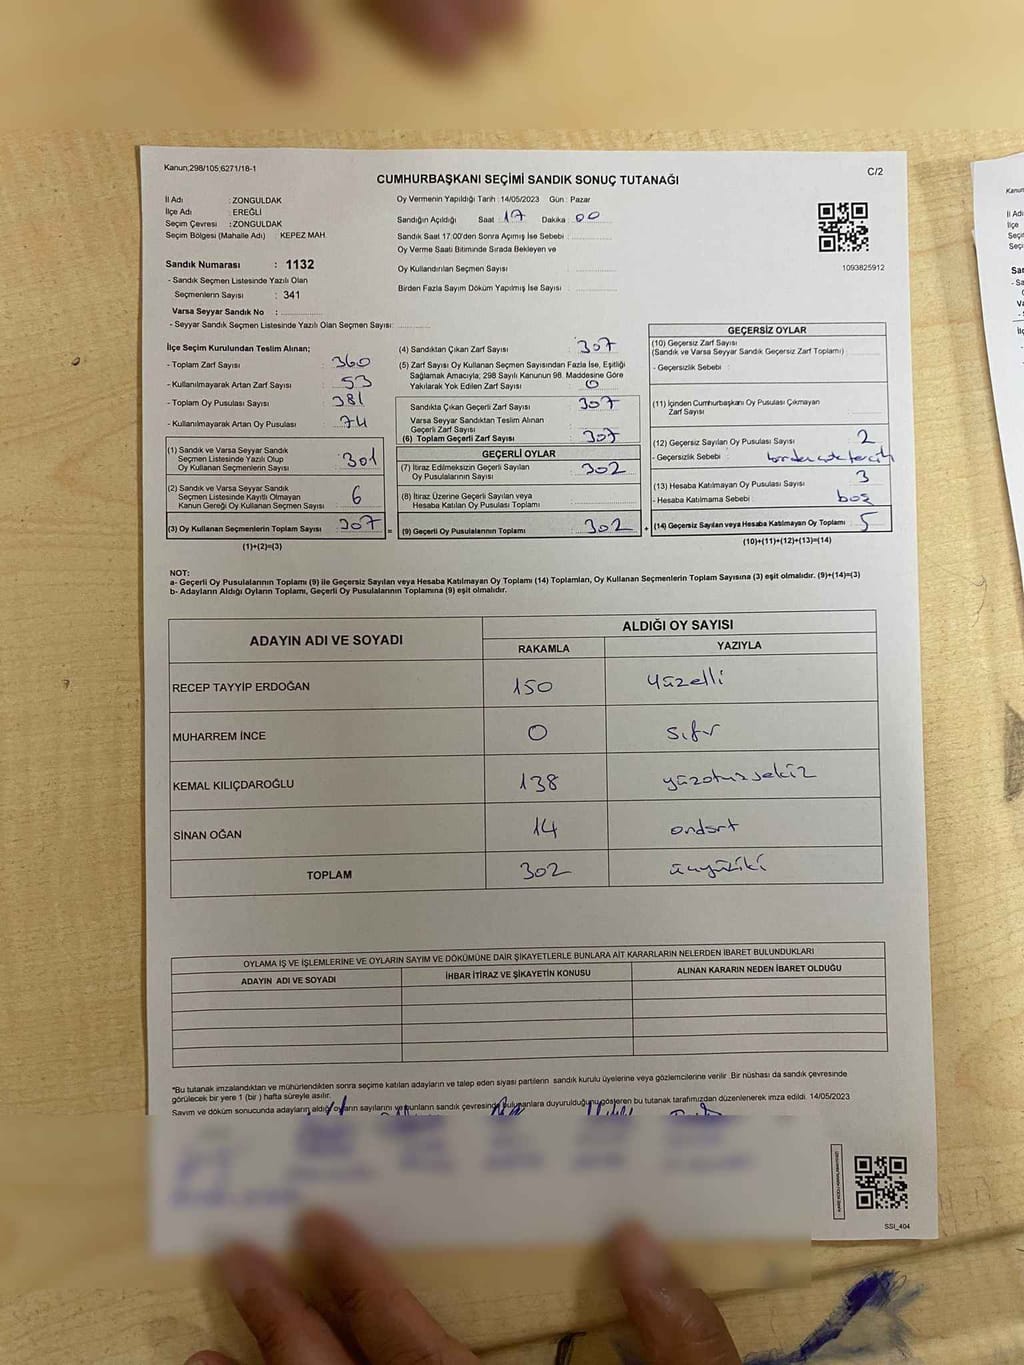 Kanun;298/105;6271/18-1
C/2
CUMHURBAŞKANI SEÇİMİ SANDIK SONUÇ TUTANAĞI
İl Adı : ZONGULDAK
İlçe Adı : EREĞLİ
Seçim Çevresi : ZONGULDAK
Seçim Bölgesi (Mahalle Adı) : KEPEZ MAH.
Sandık Numarası : 1132
- Sandık Seçmen Listesinde Yazılı Olan
Seçmenlerin Sayısı : 341
Varsa Seyyar Sandık No :
- Seyyar Sandık Seçmen Listesinde Yazılı Olan Seçmen Sayısı:
Oy Vermenin Yapıldığı Tarih : 14/05/2023 Gün : Pazar
Sandığın Açıldığı Saat : 17 Dakika : 00
Sandık Saat 17:00'den Sonra Açımış İse Sebebi :
Oy Verme Saati Bitiminde Sırada Bekleyen ve
Oy Kullandırılan Seçmen Sayısı :
Birden Fazla Sayım Döküm Yapılmış İse Sayısı :
1093825912
İlçe Seçim Kurulundan Teslim Alınan;
- Toplam Zarf Sayısı : 360
- Kullanılmayarak Artan Zarf Sayısı : 53
- Toplam Oy Pusulası Sayısı : 381
- Kullanılmayarak Artan Oy Pusulası : 74
(1) Sandık ve Varsa Seyyar Sandık
Seçmen Listesinde Yazılı Olup
Oy Kullanan Seçmenlerin Sayısı : 301
(2) Sandık ve Varsa Seyyar Sandık
Seçmen Listesinde Kayıtlı Olmayan
Kanun Gereği Oy Kullanan Seçmen Sayısı : 6
(3) Oy Kullanan Seçmenlerin Toplam Sayısı : 307
(1)+(2)=(3)
(4) Sandıktan Çıkan Zarf Sayısı : 307
(5) Zarf Sayısı Oy Kullanan Seçmen Sayısından Fazla İse, Eşitliği
Sağlamak Amacıyla; 298 Sayılı Kanunun 98. Maddesine Göre
Yakılarak Yok Edilen Zarf Sayısı : 0
Sandıkta Çıkan Geçerli Zarf Sayısı : 307
Varsa Seyyar Sandıktan Teslim Alınan
Geçerli Zarf Sayısı :
(6) Toplam Geçerli Zarf Sayısı : 307
GEÇERLİ OYLAR
(7) İtiraz Edilmeksizin Geçerli Sayılan
Oy Pusulalarının Sayısı : 302
(8) İtiraz Üzerine Geçerli Sayılan veya
Hesaba Katılan Oy Pusulası Toplamı :
= (9) Geçerli Oy Pusulalarının Toplamı : 302 +
GEÇERSİZ OYLAR
(10) Geçersiz Zarf Sayısı
(Sandık ve Varsa Seyyar Sandık Geçersiz Zarf Toplamı) :
- Geçersizlik Sebebi :
(11) İçinden Cumhurbaşkanı Oy Pusulası Çıkmayan
Zarf Sayısı
(12) Geçersiz Sayılan Oy Pusulası Sayısı : 2
- Geçersizlik Sebebi :
(13) Hesaba Katılmayan Oy Pusulası Sayısı : 3
- Hesaba Katılmama Sebebi : boş
(14) Geçersiz Sayılan veya Hesaba Katılmayan Oy Toplamı : 5
(10)+(11)+(12)+(13)=(14)
NOT:
a- Geçerli Oy Pusulalarının Toplamı (9) ile Geçersiz Sayılan veya Hesaba Katılmayan Oy Toplamı (14) Toplamları, Oy Kullanan Seçmenlerin Toplam Sayısına (3) eşit olmalıdır. (9)+(14)=(3)
b- Adayların Aldığı Oyların Toplamı, Geçerli Oy Pusulalarının Toplamına (9) eşit olmalıdır.
ADAYIN ADI VE SOYADI
ALDIĞI OY SAYISI
RAKAMLA YAZIYLA
RECEP TAYYİP ERDOĞAN 150 yüzelli
MUHARREM İNCE 0 sıfır
KEMAL KILIÇDAROĞLU 138 yüzotuzsekiz
SİNAN OĞAN 14 ondört
TOPLAM 302 üçyüziki
OYLAMA İŞ VE İŞLEMLERİNE VE OYLARIN SAYIM VE DÖKÜMÜNE DAİR ŞİKAYETLERLE BUNLARA AİT KARARLARIN NELERDEN İBARET BULUNDUKLARI
ADAYIN ADI VE SOYADI İHBAR İTİRAZ VE ŞİKAYETİN KONUSU ALINAN KARARIN NEDEN İBARET OLDUĞU
*Bu tutanak imzalandıktan ve mühürlendikten sonra seçime katılan adayların ve talep eden siyasi partilerin sandık kurulu üyelerine veya gözlemcilerine verilir. Bir nüshası da sandık çevresinde
görülecek bir yere 1 (bir) hafta süreyle asılır.
Sayım ve döküm sonucunda adayların aldığı oyların sayılarını ve bunların sandık çevresinde bulunanlara duyurulduğunu gösteren bu tutanak tarafımızdan düzenlenerek imza edildi. 14/05/2023
SSI_404